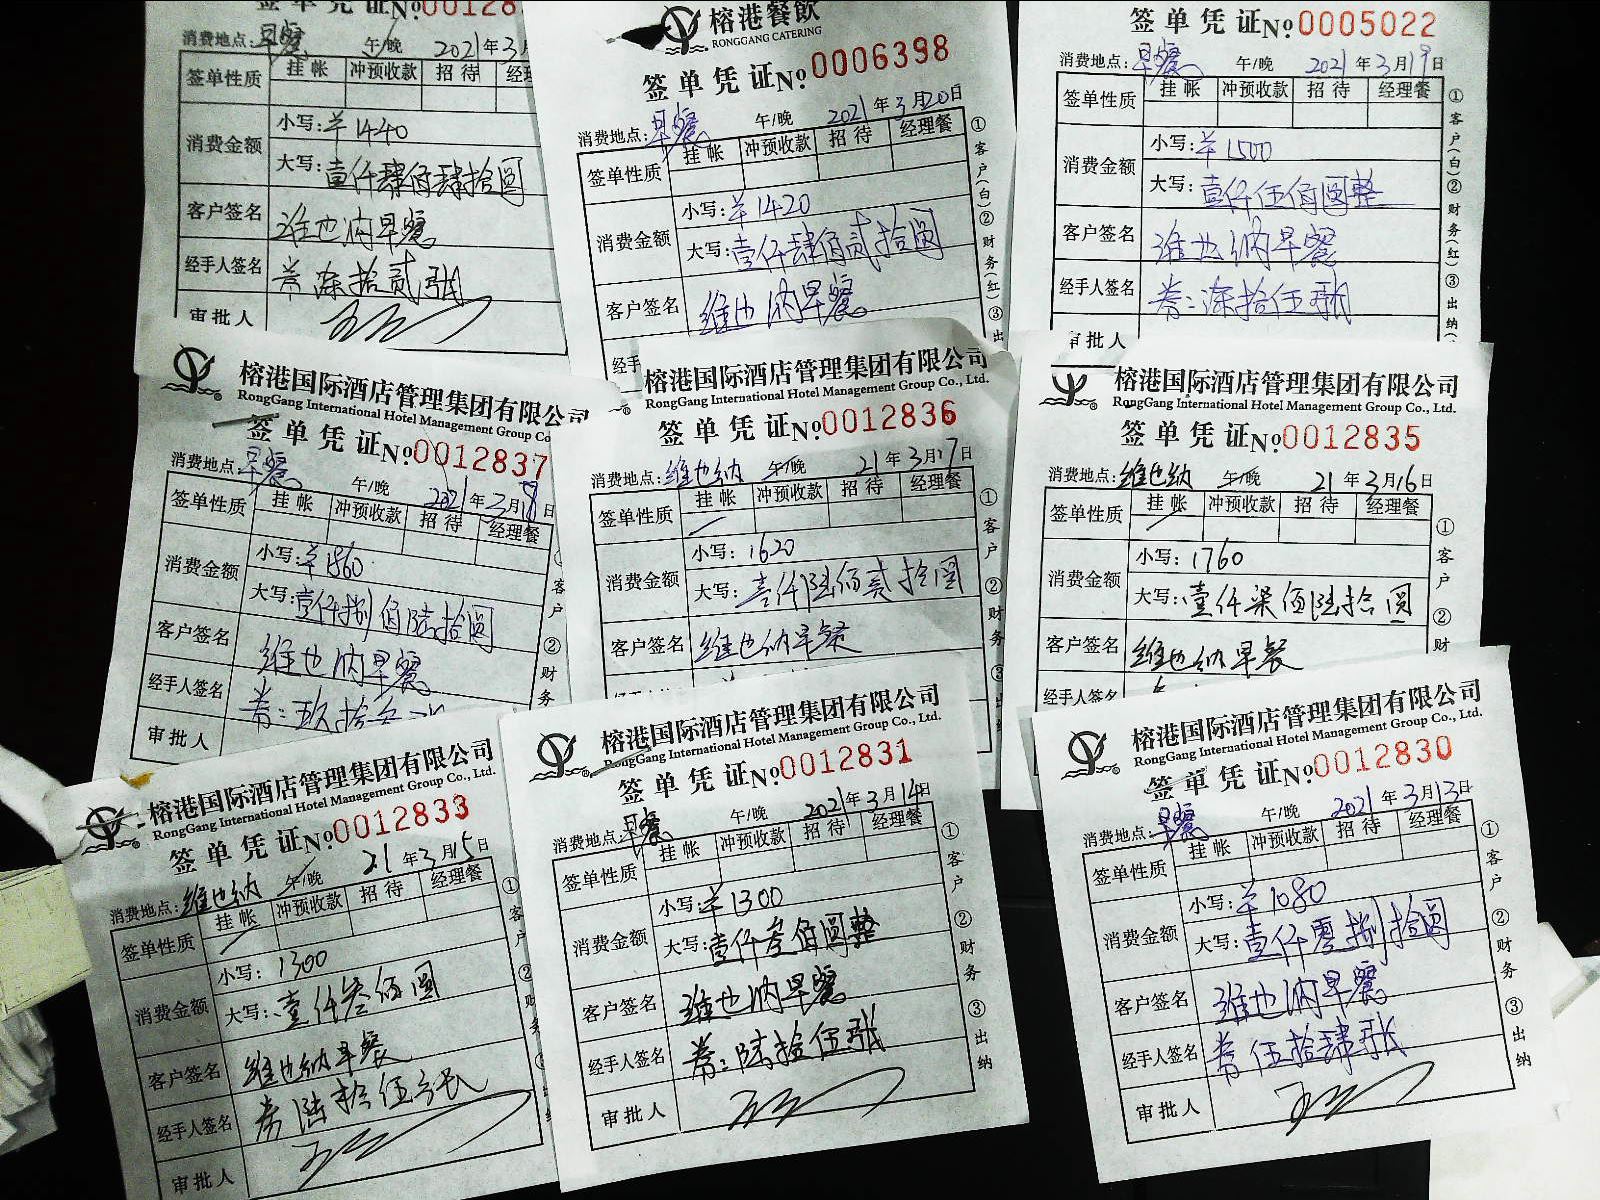 签单凭证№00128
消费地点:早餐 午/晚 2021年3月
签单性质 挂帐 冲预收款 招待 经理
消费金额 小写:¥1440
大写:壹仟肆佰肆拾圆
客户签名 维也纳早餐
经手人签名 券柒拾贰张
审批人
榕港餐饮
RONGGANG CATERING
签单凭证№0006398
消费地点:早餐 午/晚 2021年3月20日
签单性质 挂帐 冲预收款 招待 经理餐
消费金额 小写:¥1420
大写:壹仟肆佰贰拾圆
客户签名 维也纳早餐
经手
①客户(白)②财务(红)③出
签单凭证№0005022
消费地点:早餐 午/晚 2021年3月19日
签单性质 挂帐 冲预收款 招待 经理餐
消费金额 小写:¥1500
大写:壹仟伍佰圆整
客户签名 维也纳早餐
经手人签名 券:柒拾伍张
审批人
①客户(白)②财务(红)③出纳(
榕港国际酒店管理集团有限公司
RongGang International Hotel Management Group Co
签单凭证№0012837
消费地点:早餐 午/晚 2021年3月18日
签单性质 挂帐 冲预收款 招待 经理餐
消费金额 小写:¥1860
大写:壹仟捌佰陆拾圆
客户签名 维也纳早餐
经手人签名 券:玖拾
审批人
①客户 ②财务
榕港国际酒店管理集团有限公司
RongGang International Hotel Management Group Co., Ltd.
签单凭证№0012836
消费地点:维也纳 午/晚 21年3月17日
签单性质 挂帐 冲预收款 招待 经理餐
消费金额 小写:1620
大写:壹仟陆佰贰拾圆
客户签名 维也纳早餐
经手人签名
①客户 ②财务 ③
榕港国际酒店管理集团有限公司
RongGang International Hotel Management Group Co., Ltd.
签单凭证№0012835
消费地点:维也纳 午/晚 21年3月16日
签单性质 挂帐 冲预收款 招待 经理餐
消费金额 小写:1760
大写:壹仟柒佰陆拾圆
客户签名 维也纳早餐
经手人签名
①客户 ②财
榕港国际酒店管理集团有限公司
RongGang International Hotel Management Group Co., Ltd.
签单凭证№0012833
消费地点:维也纳 午/晚 21年3月15日
签单性质 挂帐 冲预收款 招待 经理餐
消费金额 小写:1300
大写:壹仟叁佰圆
客户签名 维也纳早餐
经手人签名 券陆拾伍张
审批人
①客户 ②财务
榕港国际酒店管理集团有限公司
RongGang International Hotel Management Group Co., Ltd.
签单凭证№0012831
消费地点:早餐 午/晚 2021年3月14日
签单性质 挂帐 冲预收款 招待 经理餐
消费金额 小写:¥1300
大写:壹仟叁佰圆整
客户签名 维也纳早餐
经手人签名 券:陆拾伍张
审批人
①客户 ②财务 ③出纳
榕港国际酒店管理集团有限公司
RongGang International Hotel Management Group Co., Ltd.
签单凭证№0012830
消费地点:早餐 午/晚 2021年3月13日
签单性质 挂帐 冲预收款 招待 经理餐
消费金额 小写:¥1080
大写:壹仟零捌拾圆
客户签名 维也纳早餐
经手人签名 券伍拾肆张
审批人
①客户 ②财务 ③出纳